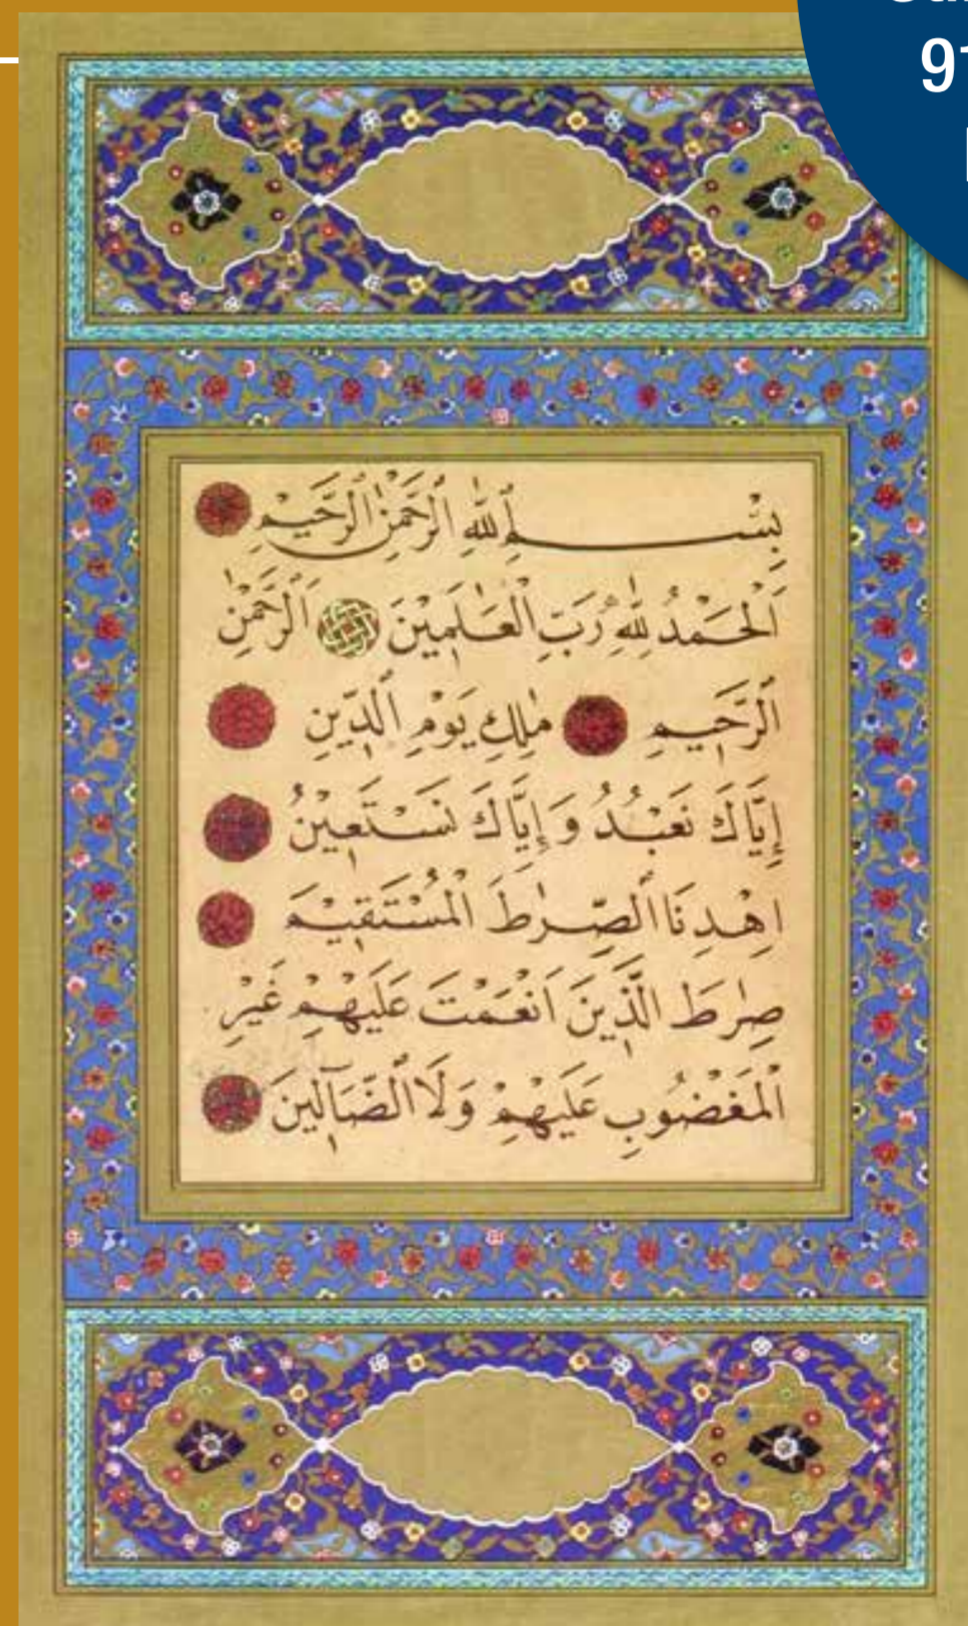 بِسْمِ ٱللّٰهِ ٱلرَّحْمٰنِ ٱلرَّحِيمِ
اَلْحَمْدُ لِلّٰهِ رَبِّ ٱلْعَـٰلَمِيْنَ ٱلرَّحْمٰنِ
ٱلرَّحِيمِ مٰلِكِ يَوْمِ ٱلدِّينِ
إِيَّاكَ نَعْبُدُ وَ إِيَّاكَ نَسْتَعِيْنُ
اِهْدِنَا ٱلصِّرٰطَ ٱلْمُسْتَقِيْمَ
صِرٰطَ الَّذِينَ اَنْعَمْتَ عَلَيْهِمْ غَيْرِ
الْمَغْضُوبِ عَلَيْهِمْ وَلَا ٱلضَّآلِّينَ